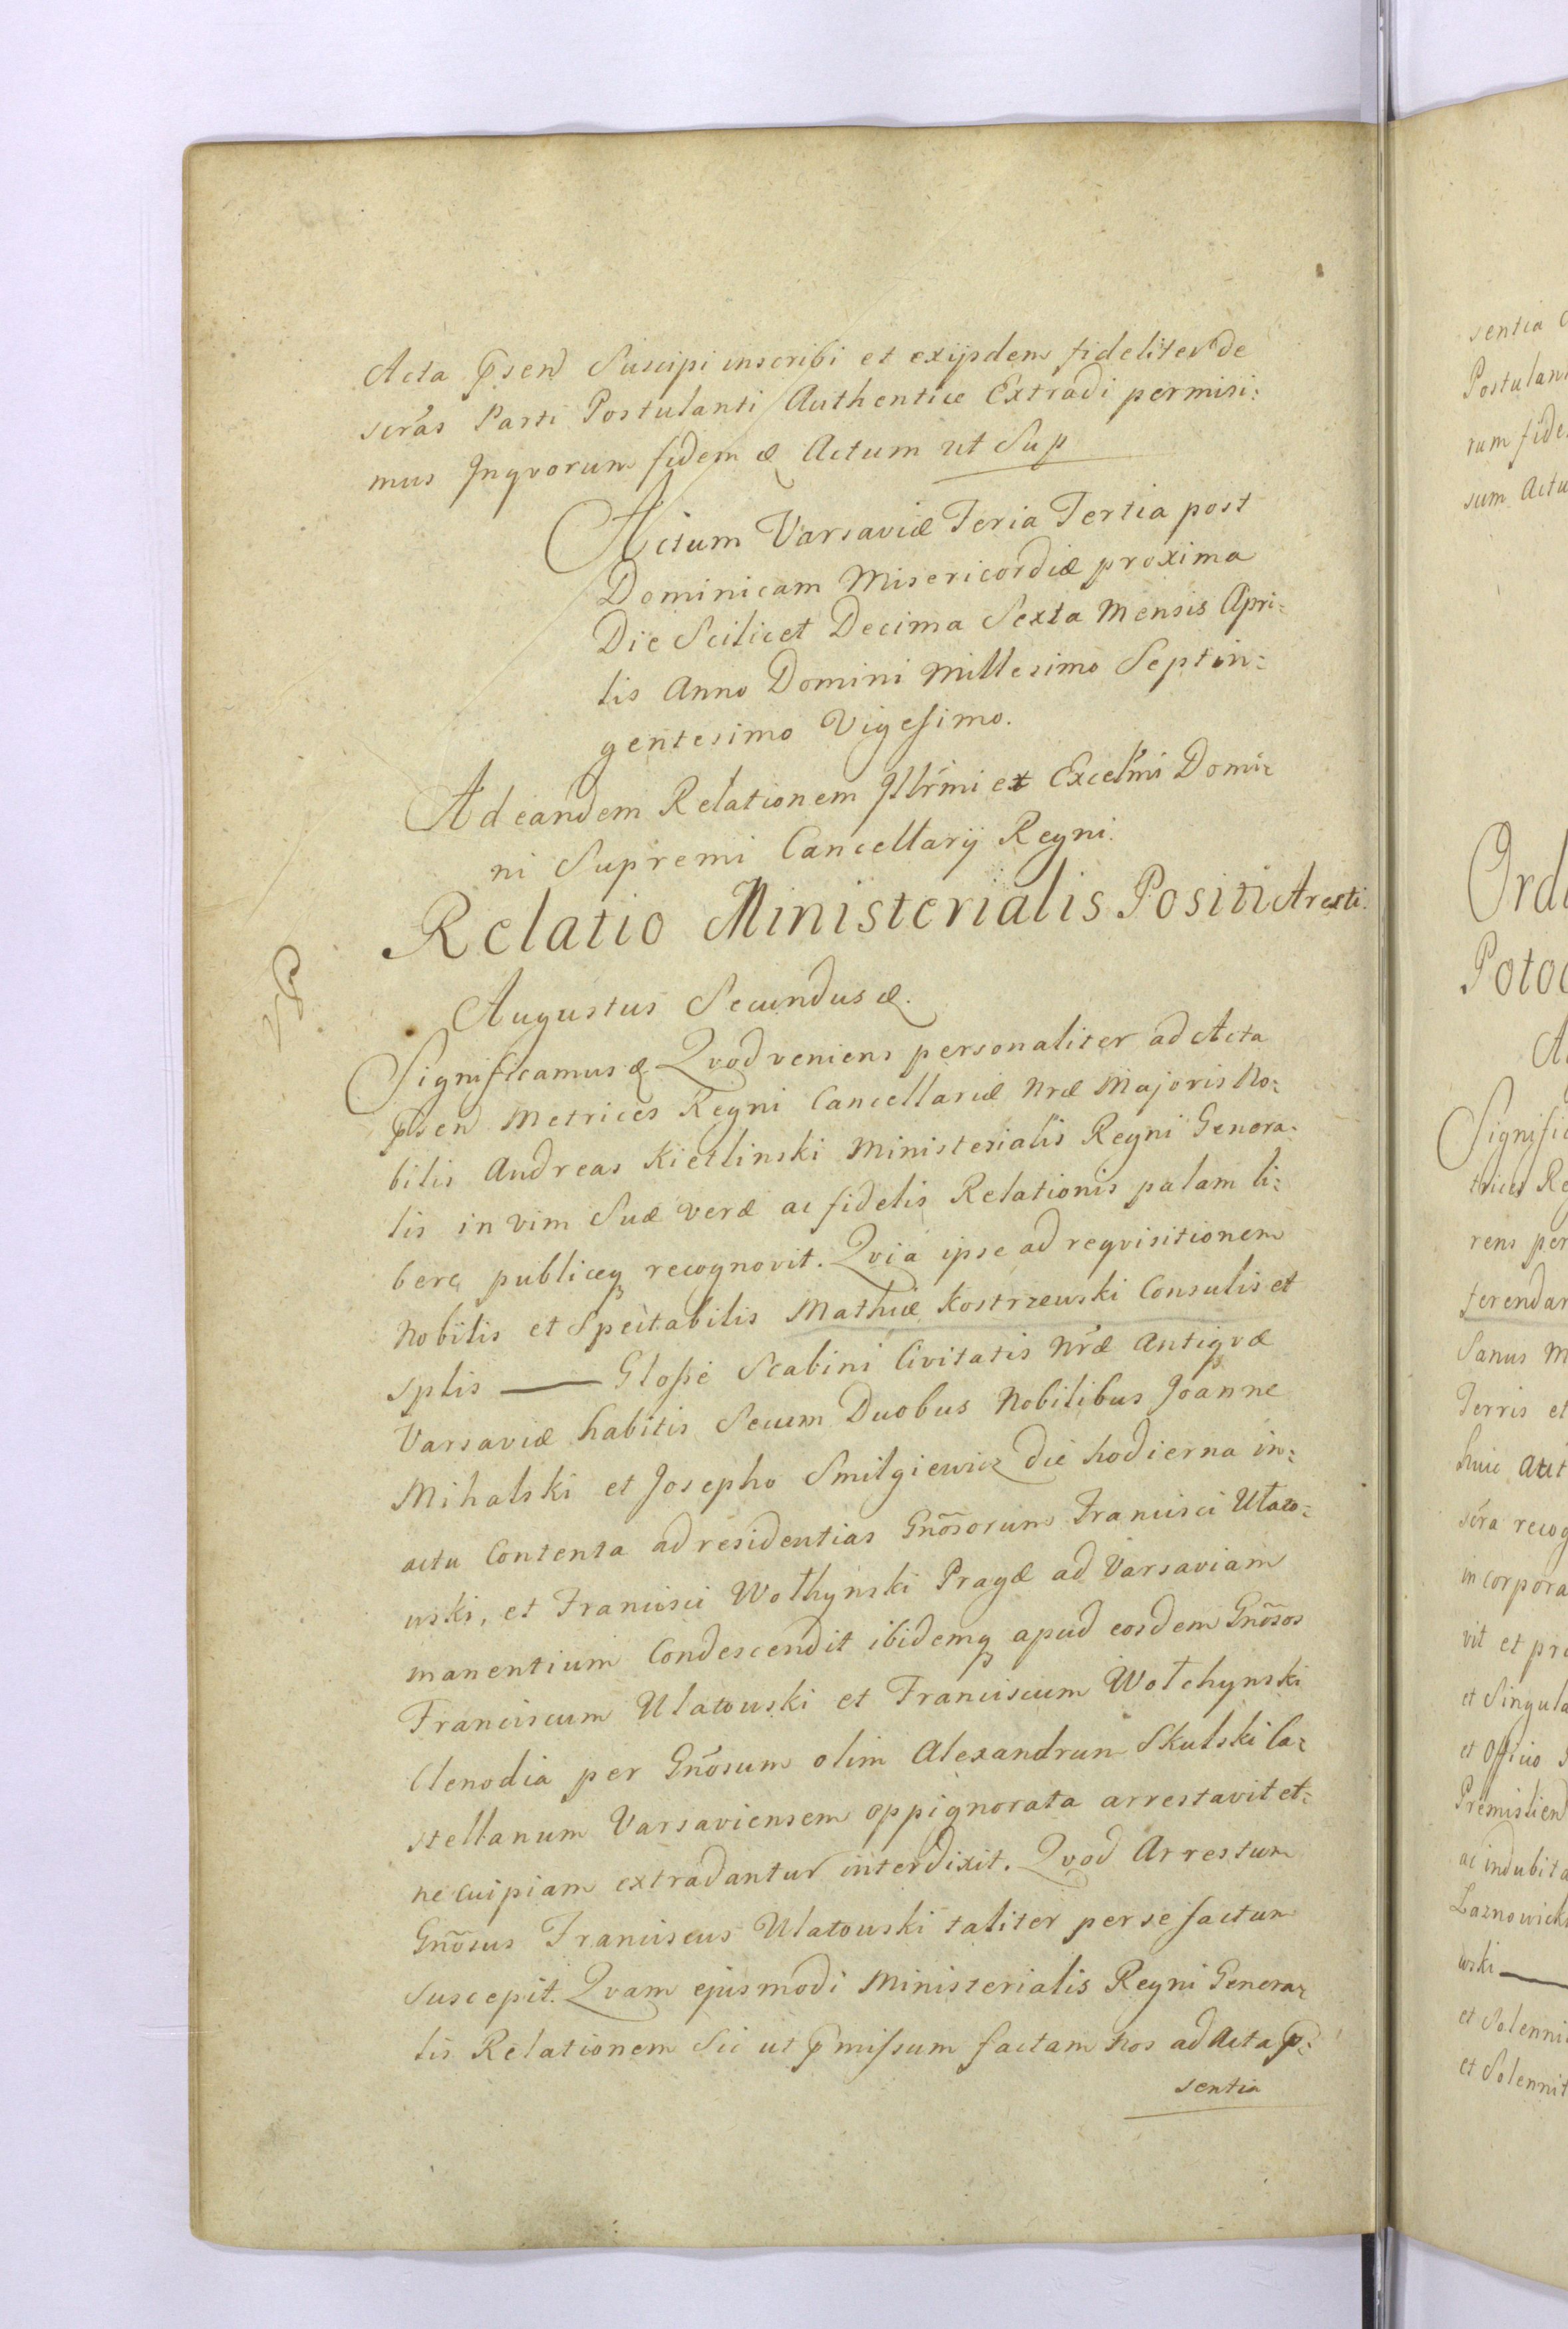 Acta p̄sen̄ Suscipi inscribi et exijsdem fideliter de
scrās Parti Postulanti Authentice Extradi permisi:
mus Jnqvorum fidem & Actum ut Sup
Actum Varsaviæ Feria Tertia post
Dominicam Misericordiæ proxima
Die Scilicet Decima Sexta Mensis Apri:
lis Anno Domini Millesimo Septin:
gentesimo Vigesimo.
Ad eandem Relationem Jllr̄mi et Excel̄mi Domi:
ni Supremi Cancellarij Regni.
Relatio Ministerialis Positi Aresti.
Augustus Secundus &.
Significamus & Qvod veniens personaliter ad Acta
p̄sen̄ Metrices Regni Cancellariæ Nræ Majoris No:
bilis Andreas Kietlinski Ministerialis Regni Genera:
lis in vim Suæ veræ ac fidelis Relationis palam li:
bere publiceq recognovit. Qvia ipse ad reqvisitionem
Nobilis et Spectabilis Mathiæ Kostrzewski Consulis et
Splis — Glosse Scabini Civitatis Nr̄æ Antiqvæ
Varsaviæ habitis Secum Duobus Nobilibus Joanne
Mihalski et Josepho Smilgiewicz die hodierna in:
actu Contenta ad residentias Gn̄osorum Francisci Ulato:
wski, et Francisci Wołhynski Pragæ ad Varsaviam
manentium Condescendit ibidemq apud eosdem Gn̄osos
Franciscum Ulatowski et Franciscum Wołchynski
Clenodia per Gn̄osum olim Alexandrum Skulski Ca:
stellanum Varsaviensem oppignorata arrestavit et:
ne cuipiam extradantur interdixit. Qvod Arrestum
Gn̄osus Franciscus Ulatowski taliter per se factum
Suscepit. Qvam ejusmodi Ministerialis Regni Genera:
lis Relationem Sic ut p̄missum factam Nos ad Acta p̄:
sentia
sentia
Postulan
rum fide
sum Actu
Ord
Potoc
Signific
trices Re
rens per
ferendar
Sanus M
Terris et
huic
scra recog
incorpora
vit et pro
et Singula
et Officio
Premislien
ac indubita
Laznowick
wski —
et Solenni
et Solennit